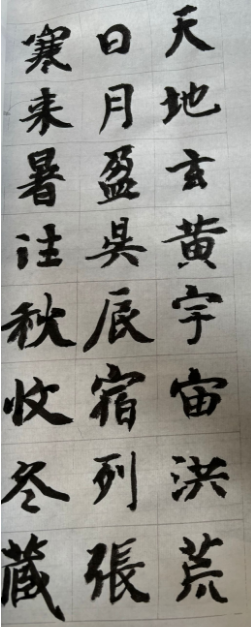 天地玄黄宇宙洪荒
日月盈昃辰宿列張
寒来暑往秋收冬蔵